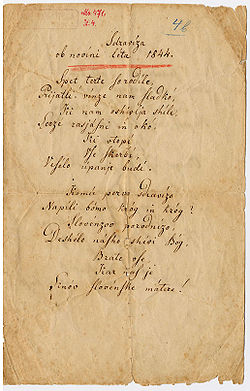 46
Sdraviza
ob novini leta 1844.
Spet terte so rodile,
Prijatli vinze nam sladkó,
Ki nam oshivlja shile,
Serze rasjásni in okó.
Ki otopi
Vse skerbi,
up budi.
Komú pervo sdravizo
Napili bómo króg in króg?
Slovénzov porodnizo,
Deshélo násho shivi Bóg,
Brate vse,
Kar naj je
Sinov slovénske mátere!